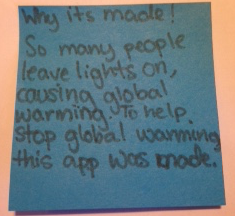 Why its made!
So many people
leave lights on,
causing global
warming. To help
stop global warming
this app was made.